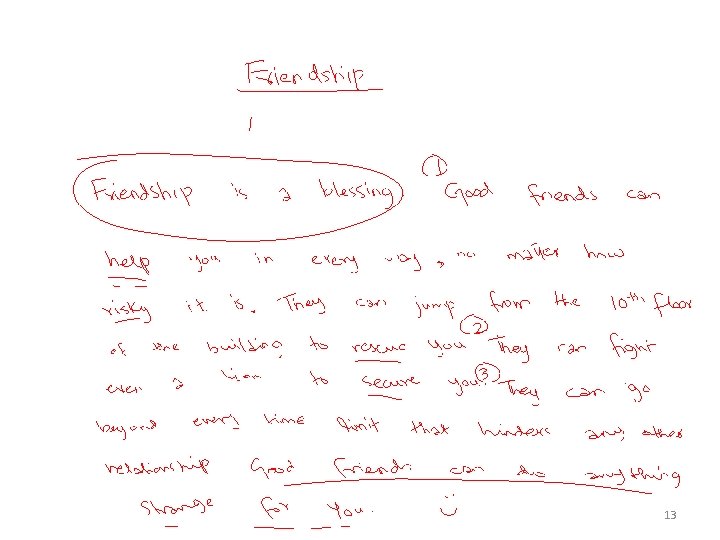 Friendship
Friendship is a blessing ① Good friends can
help you in every way, no matter how
risky it is. They can jump from the 10th floor
of the building to rescue you. ② They can fight
even a lion to secure you. ③ They can go
beyond every time limit that hinders any other
relationship Good friends can do anything
strange for you.
13